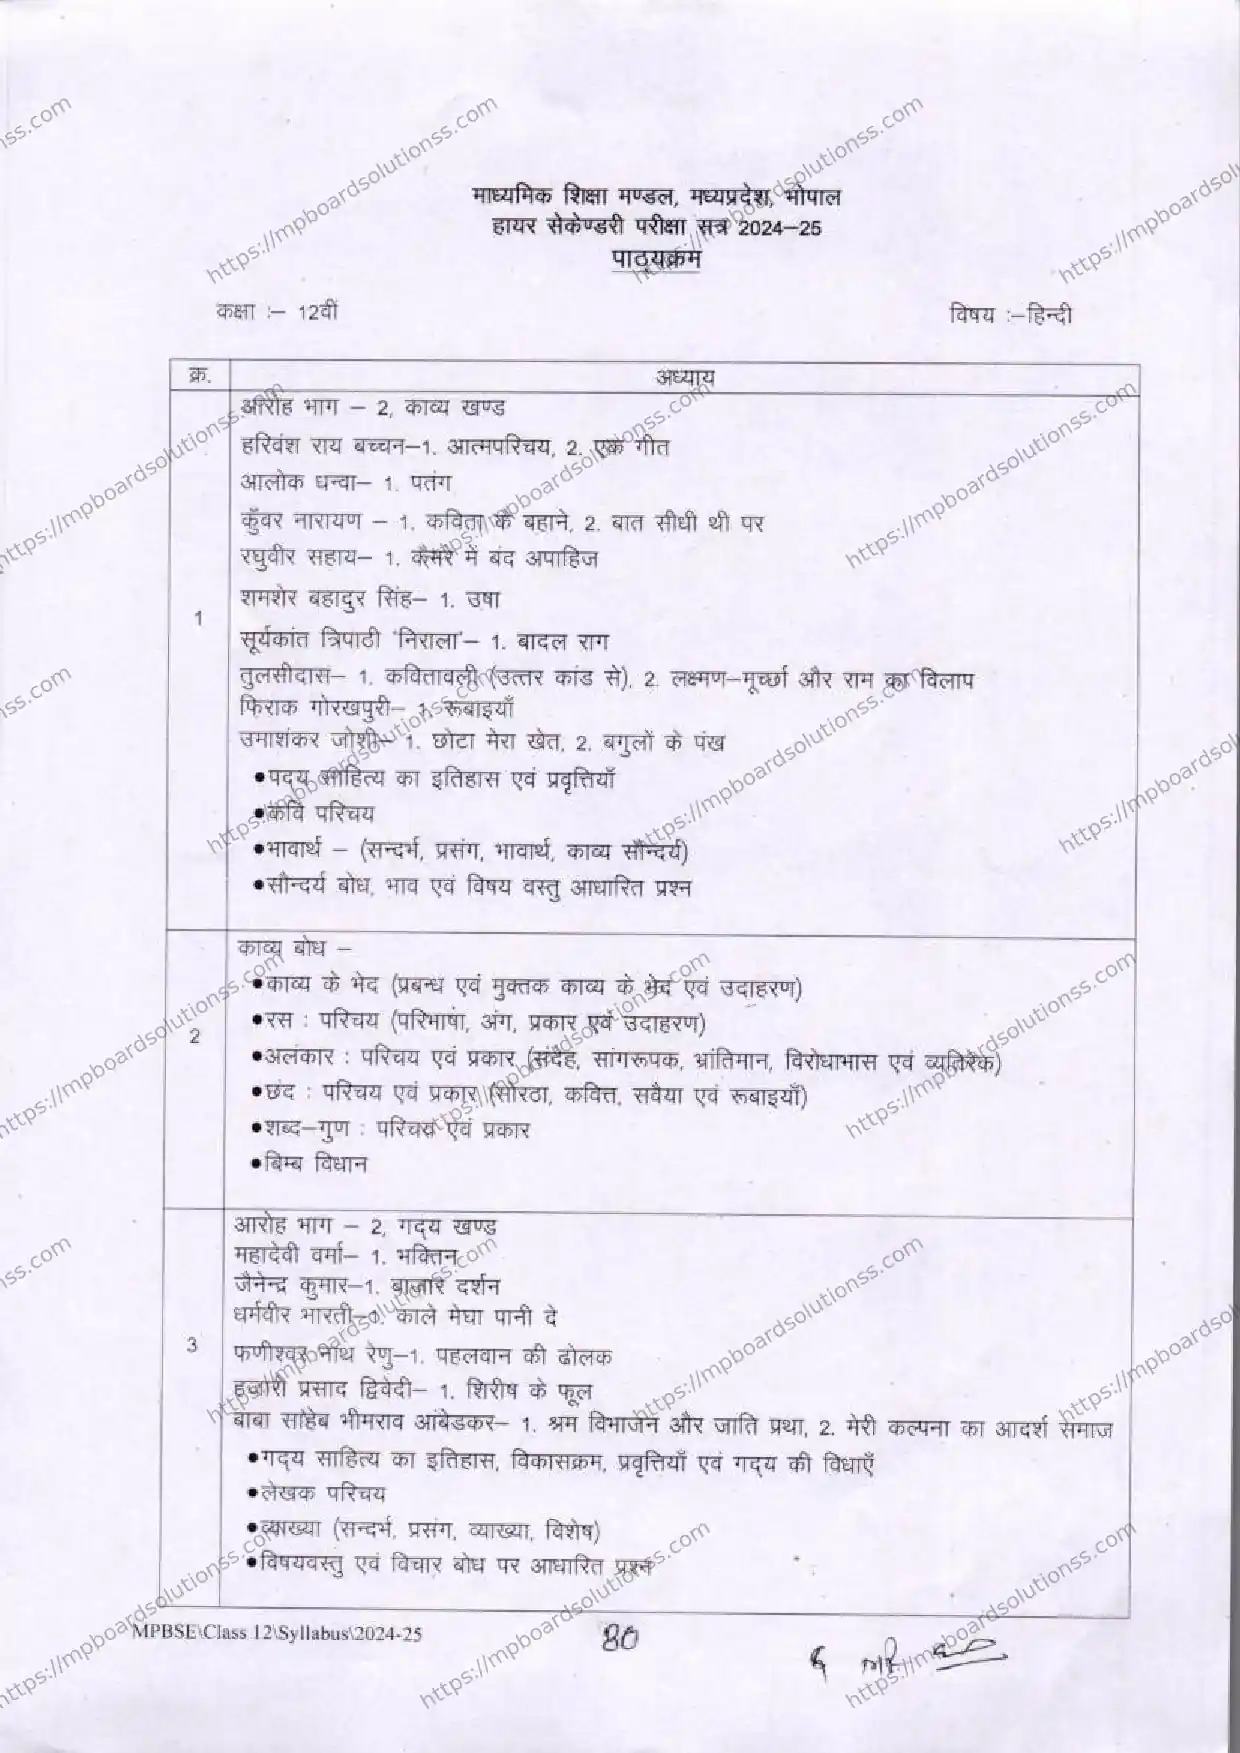 माध्यमिक शिक्षा मण्डल, मध्यप्रदेश, भोपाल
हायर सेकेण्डरी परीक्षा सत्र 2024–25
पाठ्यक्रम
कक्षा :– 12वीं
विषय :–हिन्दी
क्र.
अध्याय
1
आरोह भाग – 2, काव्य खण्ड
हरिवंश राय बच्चन–1. आत्मपरिचय, 2. एक गीत
आलोक धन्वा– 1. पतंग
कुँवर नारायण – 1. कविता के बहाने, 2. बात सीधी थी पर
रघुवीर सहाय– 1. कैमरे में बंद अपाहिज
शमशेर बहादुर सिंह– 1. उषा
सूर्यकांत त्रिपाठी 'निराला'– 1. बादल राग
तुलसीदास– 1. कवितावली (उत्तर कांड से), 2. लक्ष्मण–मूर्च्छा और राम का विलाप
फिराक गोरखपुरी– 1. रूबाइयाँ
उमाशंकर जोशी– 1. छोटा मेरा खेत, 2. बगुलों के पंख
●पद्य साहित्य का इतिहास एवं प्रवृत्तियाँ
●कवि परिचय
●भावार्थ – (सन्दर्भ, प्रसंग, भावार्थ, काव्य सौन्दर्य)
●सौन्दर्य बोध, भाव एवं विषय वस्तु आधारित प्रश्न
2
काव्य बोध –
●काव्य के भेद (प्रबन्ध एवं मुक्तक काव्य के भेद एवं उदाहरण)
●रस : परिचय (परिभाषा, अंग, प्रकार एवं उदाहरण)
●अलंकार : परिचय एवं प्रकार (संदेह, सांगरूपक, भ्रांतिमान, विरोधाभास एवं व्यतिरेक)
●छंद : परिचय एवं प्रकार (सोरठा, कवित्त, सवैया एवं रूबाइयाँ)
●शब्द–गुण : परिचय एवं प्रकार
●बिम्ब विधान
3
आरोह भाग – 2, गद्य खण्ड
महादेवी वर्मा– 1. भक्तिन
जैनेन्द्र कुमार–1. बाजार दर्शन
धर्मवीर भारती–1. काले मेघा पानी दे
फणीश्वर नाथ रेणु–1. पहलवान की ढोलक
हजारी प्रसाद द्विवेदी– 1. शिरीष के फूल
बाबा साहेब भीमराव आंबेडकर– 1. श्रम विभाजन और जाति प्रथा, 2. मेरी कल्पना का आदर्श समाज
●गद्य साहित्य का इतिहास, विकासक्रम, प्रवृत्तियाँ एवं गद्य की विधाएँ
●लेखक परिचय
●व्याख्या (सन्दर्भ, प्रसंग, व्याख्या, विशेष)
●विषयवस्तु एवं विचार बोध पर आधारित प्रश्न
MPBSE\Class 12\Syllabus\2024-25
80
https://mpboardsolutionss.com